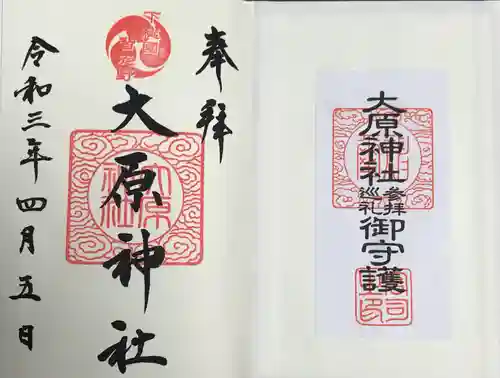 奉拝
大原神社
令和三年四月五日
大原神社
参拝
巡礼
御守護